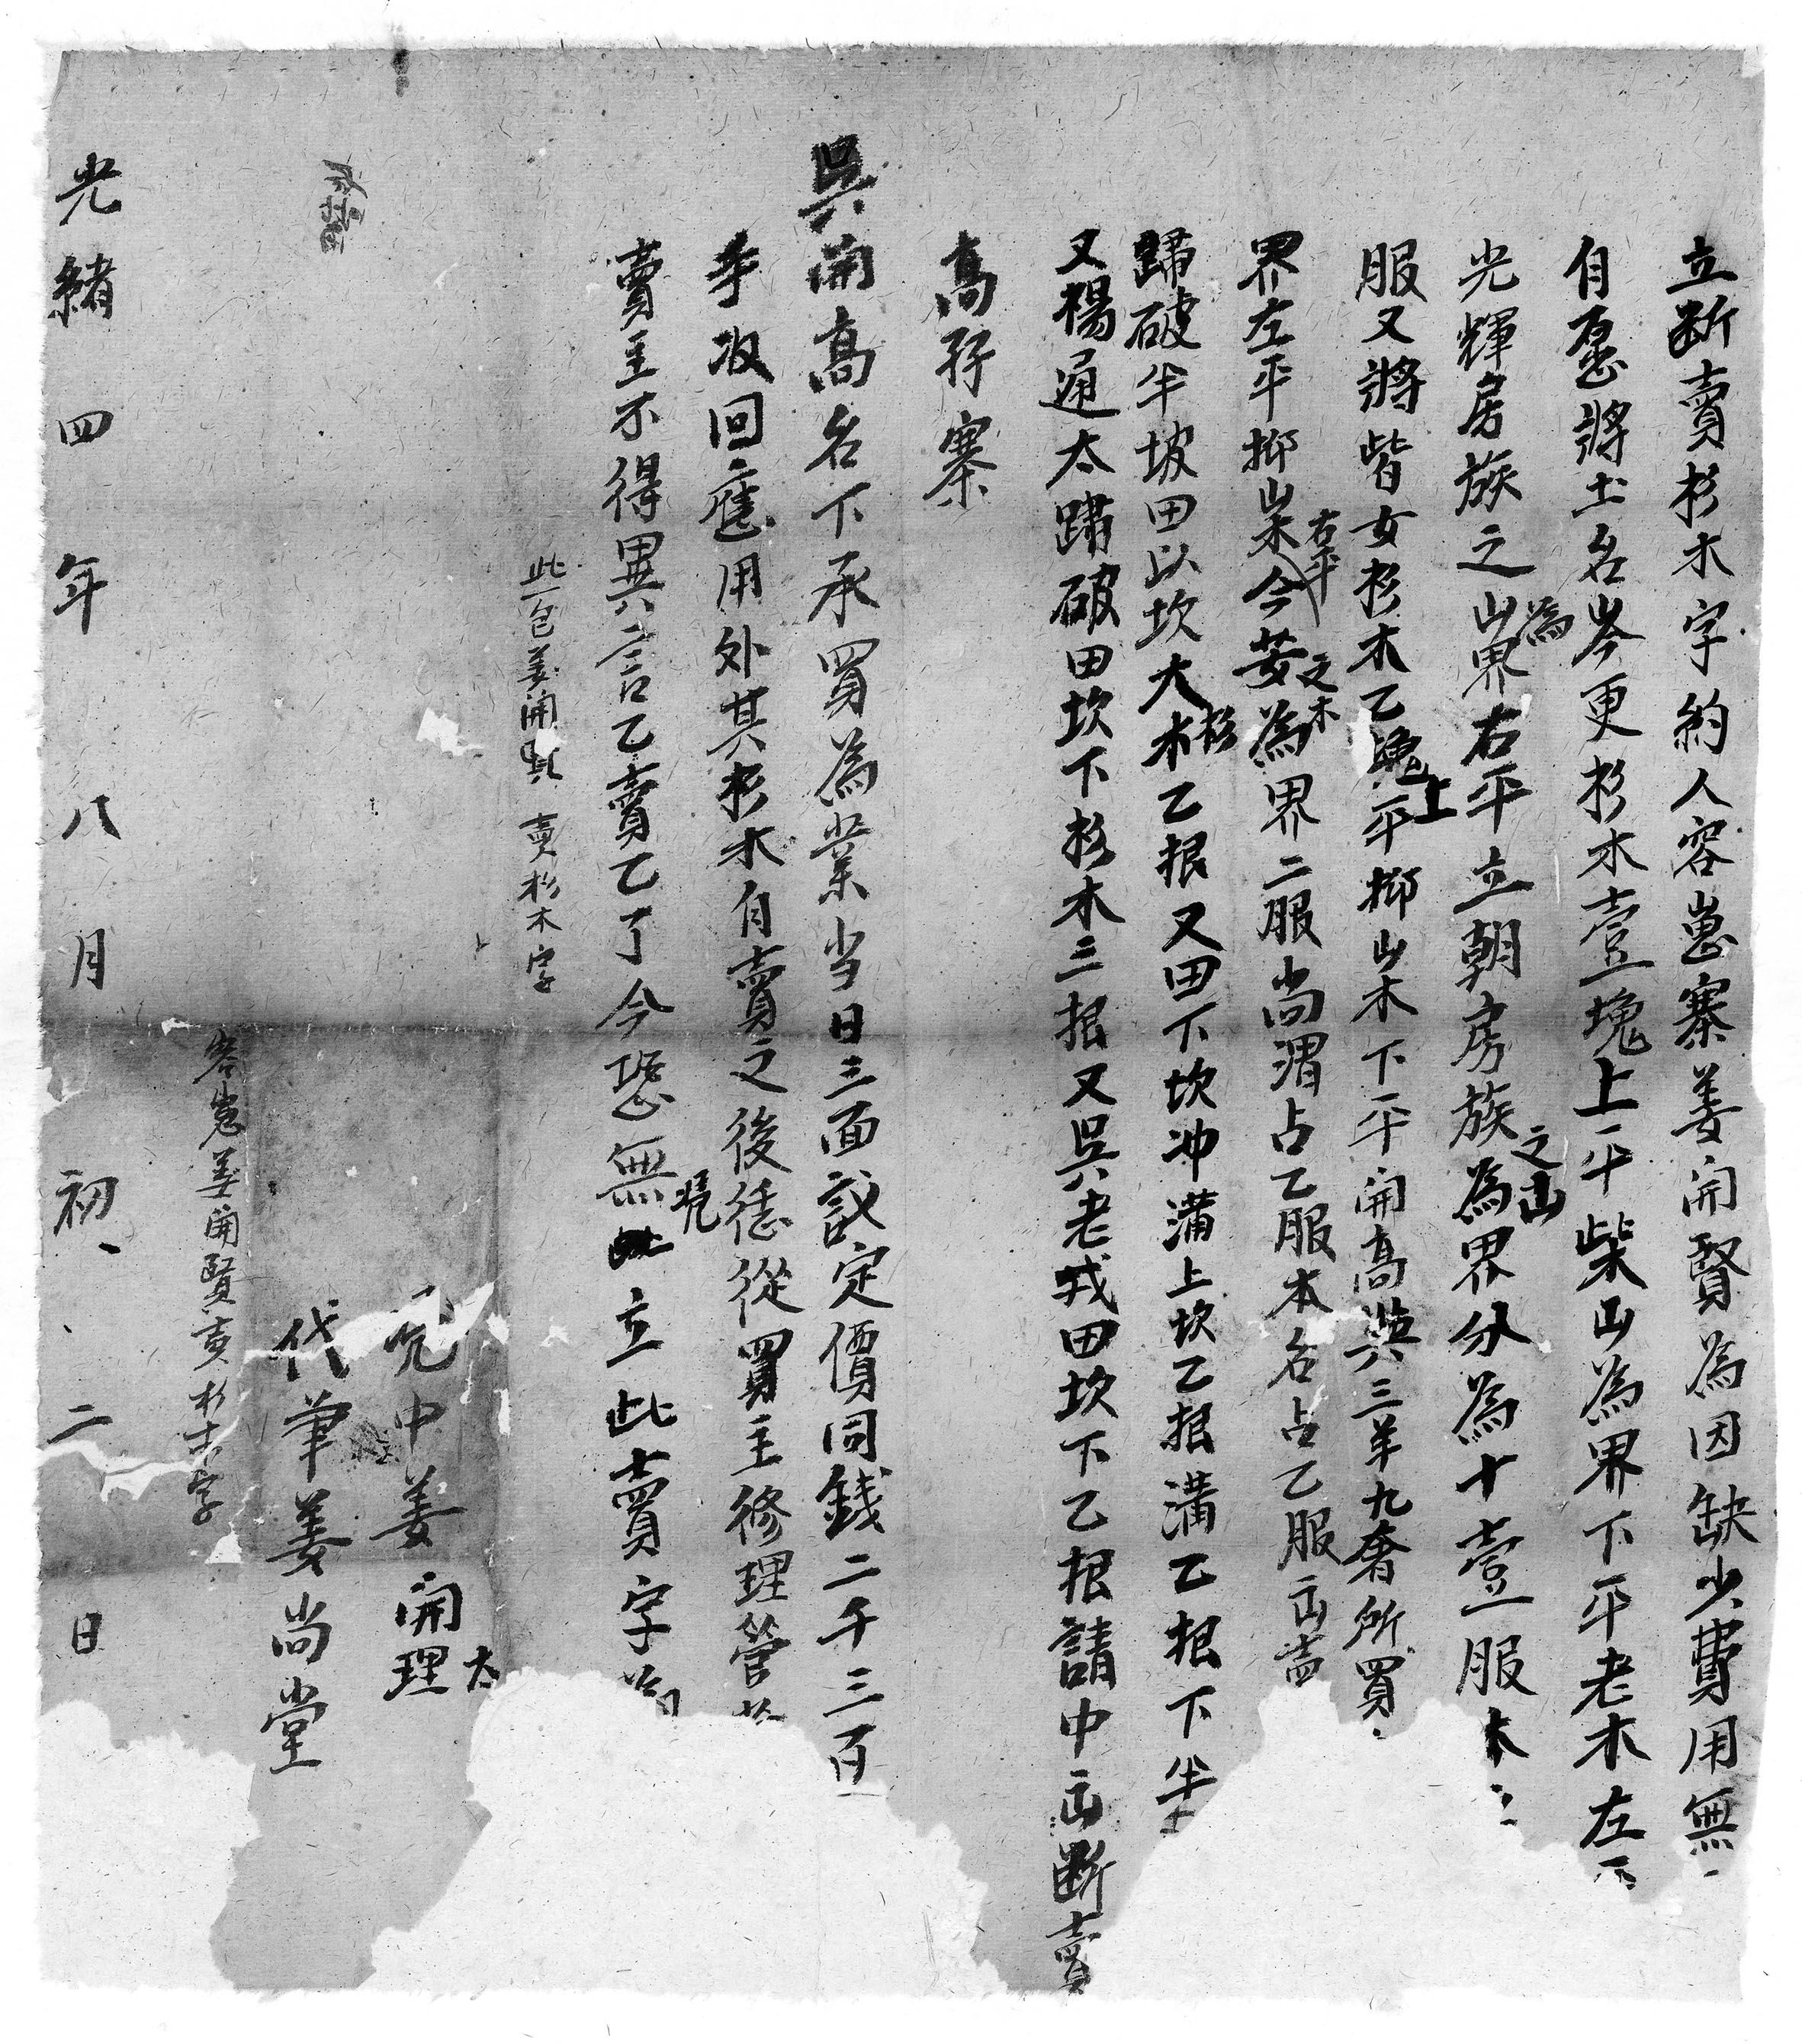 立断賣杉木字約人容嵬寨姜開賢為因缺少費用無
自愿將土名岑更杉木壹塊上平柴山為界下平老木左平
光輝房族之山為界右平立朝房族之山為界分為十壹服本
服又將皆女杉木乙塊上平抑山木下平開高與三羊九奢所買
界左平抑山木右平今晏之木為界二服尚渭占乙服本名占乙服出賣
歸破半坡田以坎大杉木乙根又田下坎冲溝上坎乙根溝乙根下半
又楊通太歸破田坎下杉木三根又吳老戎田坎下乙根請中出断賣
高孖寨
吳開高名下承買為業当日三面議定價同錢二千三百
手收回應用外其杉木自賣之後任從買主修理管
賣主不得異言乙賣乙了今恐無凭立此賣字
此一包姜開賢賣杉木字
凭中姜開理 太
代筆姜尚堂
容嵬姜開賢賣杉木字
光緒四年八月初二日